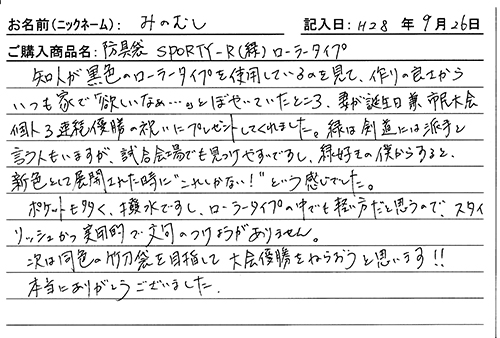 お名前(ニックネーム): みのむし 記入日: H28 年 9月 26日
ご購入商品名: 防具袋 SPORTY-R(緑) ローラータイプ
知人が黒色のローラータイプを使用しているのを見て、作りの良さから
いつも家で"欲しいなぁ…"とぼやいていたところ、妻が誕生日兼市民大会
個人3連続優勝の祝いにプレゼントしてくれました。緑は剣道には派手と
言う人もいますが、試合会場でも見つけやすいですし、緑好きの僕からすると、
新色として展開された時に"これしかない!"という感じでした。
ポケットも多く、撥水ですし、ローラータイプの中でも軽い方だと思うので、スタイ
リッシュかつ実用的で文句のつけようがありません。
次は同色の竹刀袋を目指して大会優勝をねらおうと思います!!
本当にありがとうございました.